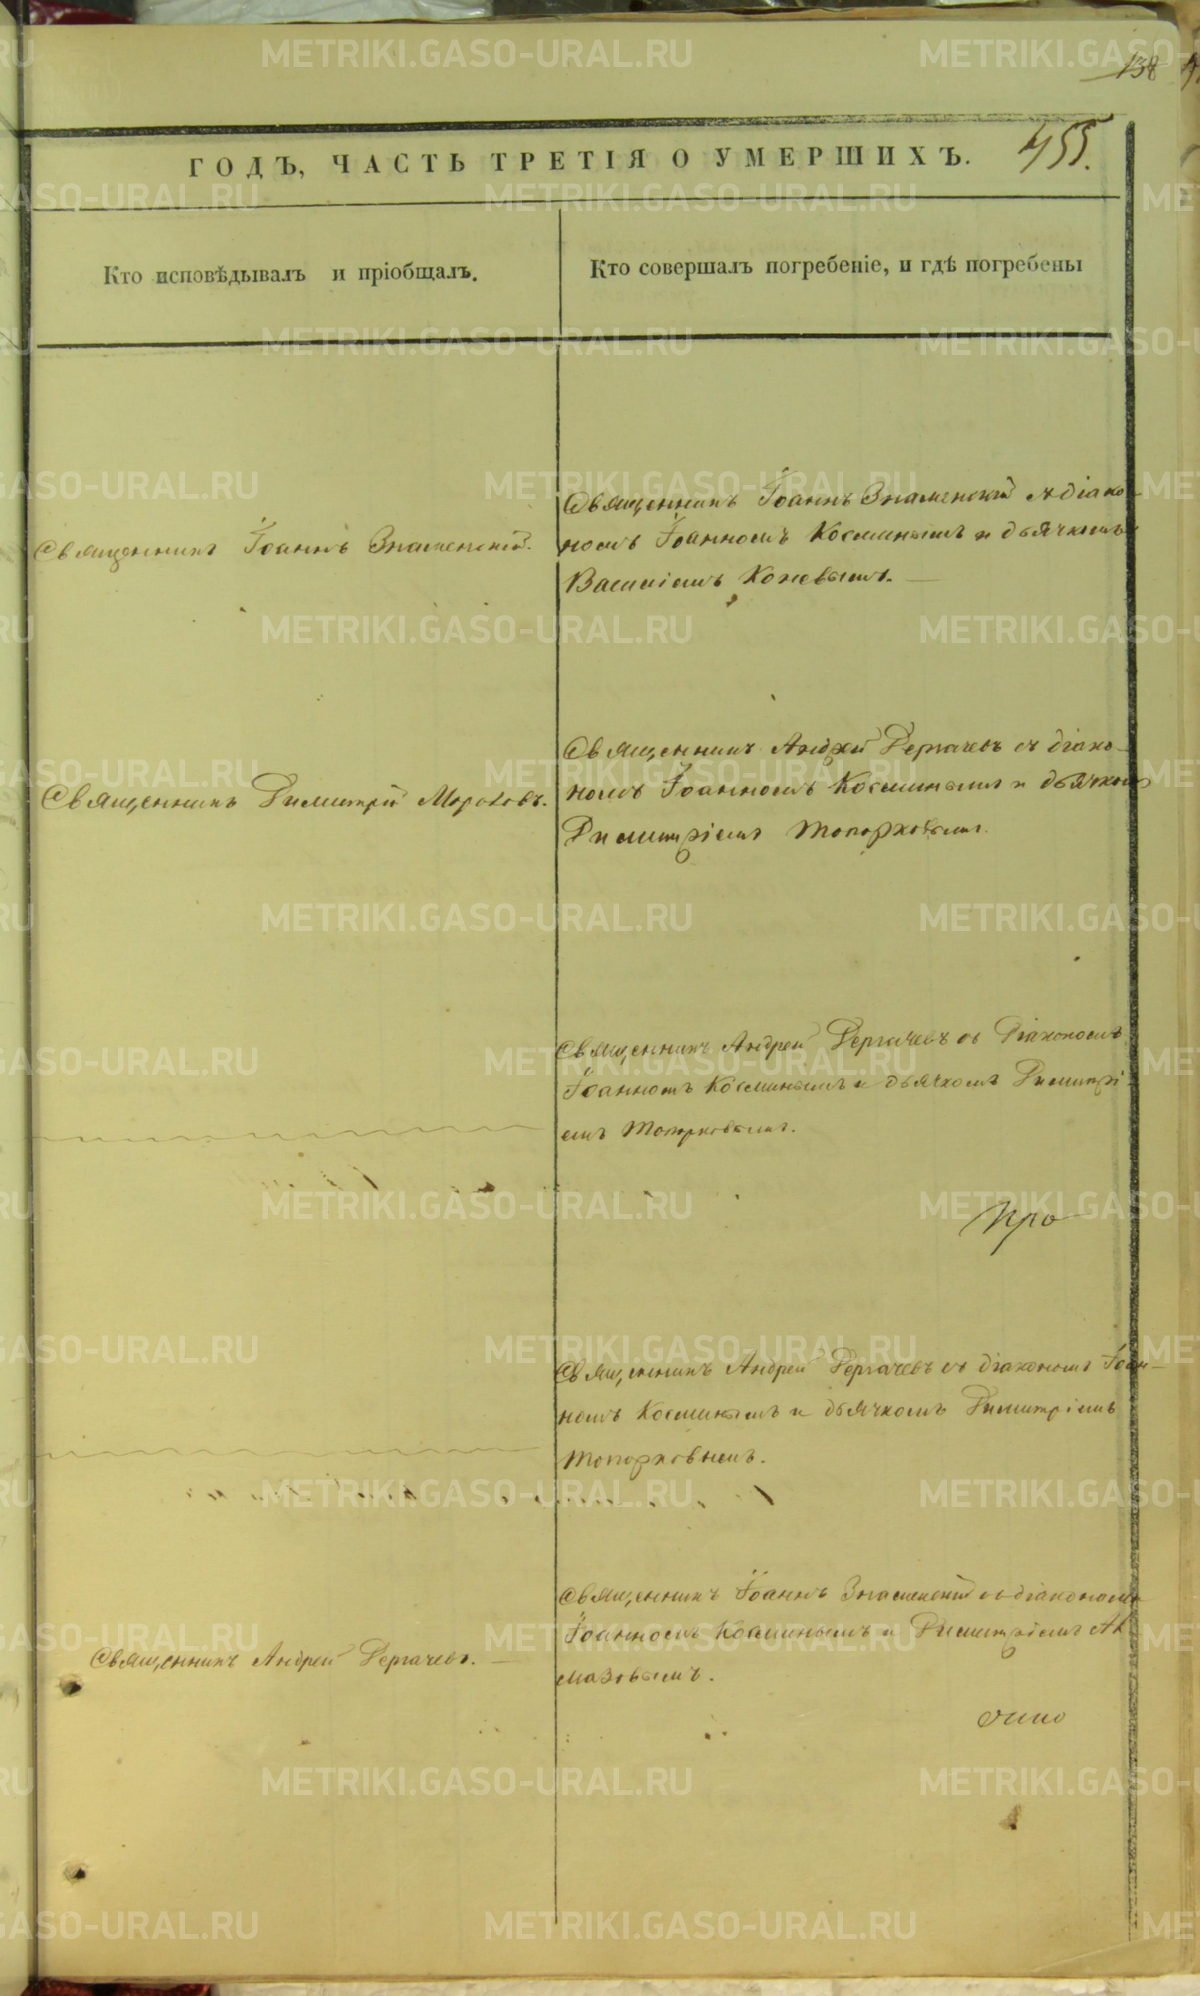 138
455.
ГОДЪ, ЧАСТЬ ТРЕТІЯ О УМЕРШИХЪ.
Кто исповѣдывалъ и пріобщалъ.
Кто совершалъ погребеніе, и гдѣ погребены
Священникъ Іоаннъ Знаменскій.
Священникъ Іоаннъ Знаменскій съ діако-
номъ Іоанномъ Косминымъ и дьячкомъ
Василіемъ Коневымъ.
Священникъ Димитрій Мороковъ.
Священникъ Андрей Дергачевъ съ діако-
номъ Іоанномъ Косминымъ и дьячкомъ
Димитріемъ Топорковымъ.
Священникъ Андрей Дергачевъ съ Діакономъ
Іоанномъ Косминымъ и дьячкомъ Димитрі-
емъ Топорковымъ.
Про
Священникъ Андрей Дергачевъ съ діакономъ Іоан-
номъ Косминымъ и дьячкомъ Димитріемъ
Топорковымъ.
Священникъ Андрей Дергачевъ.
Священникъ Іоаннъ Знаменскій съ діакономъ
Іоанномъ Косминымъ и Димитріемъ Ал
мазовымъ.
METRIKI.GASO-URAL.RU